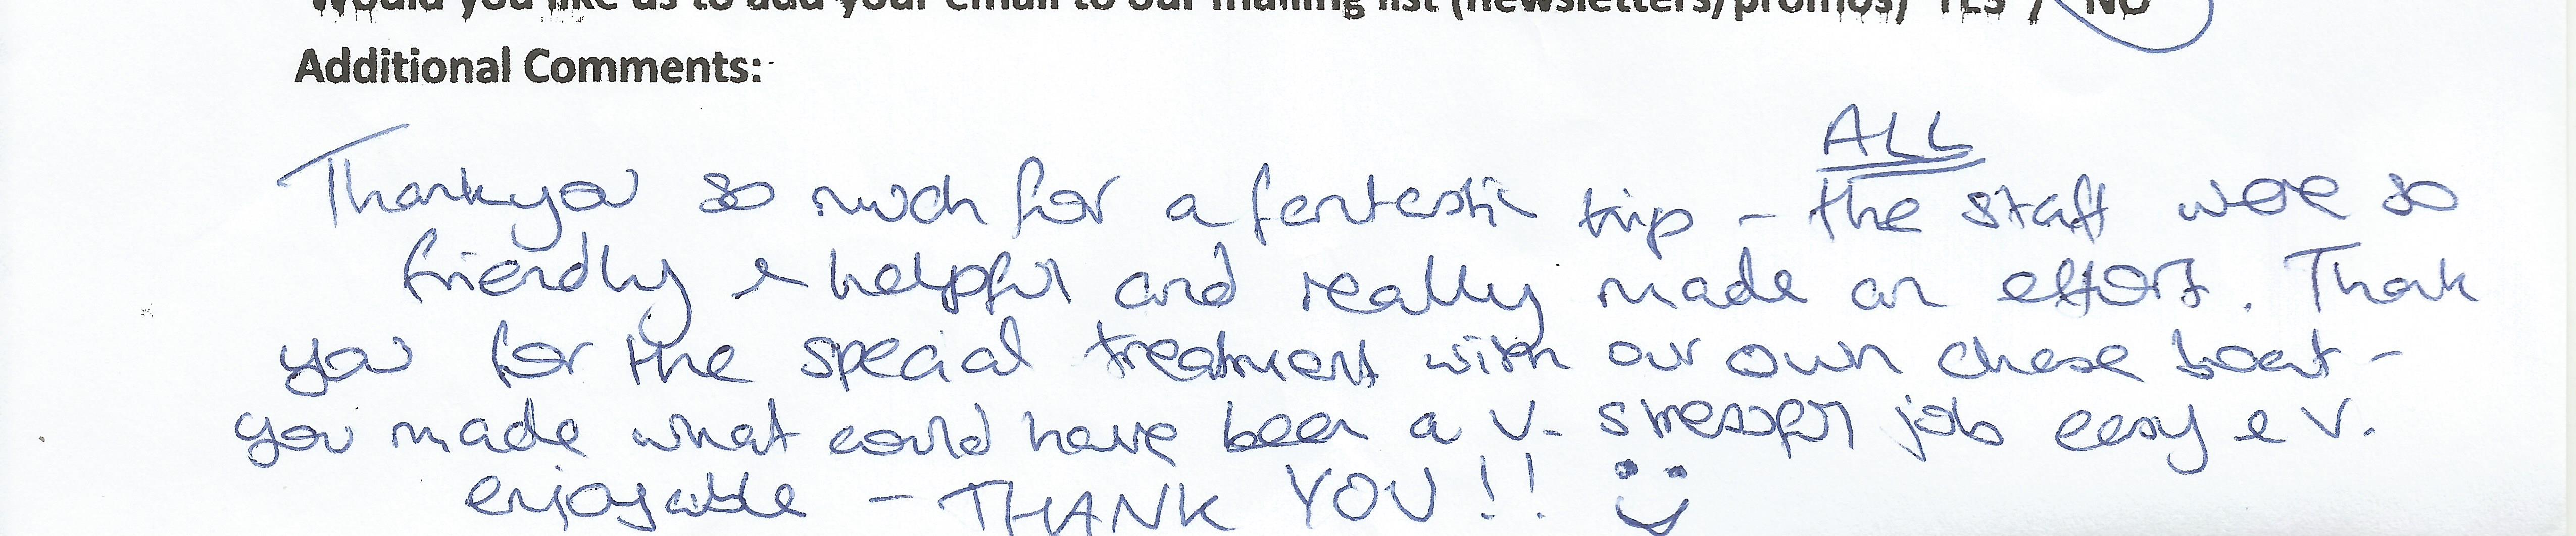 Would you like us to add your email to our mailing list (newsletters/promos) YES / NO
Additional Comments:
ALL
Thankyou so much for a fantastic trip - the staff were so
friendly & helpful and really made an effort. Thank
you for the special treatment with our own chase boat -
you made what could have been a v. stressful job easy & v.
enjoyable - THANK YOU!!